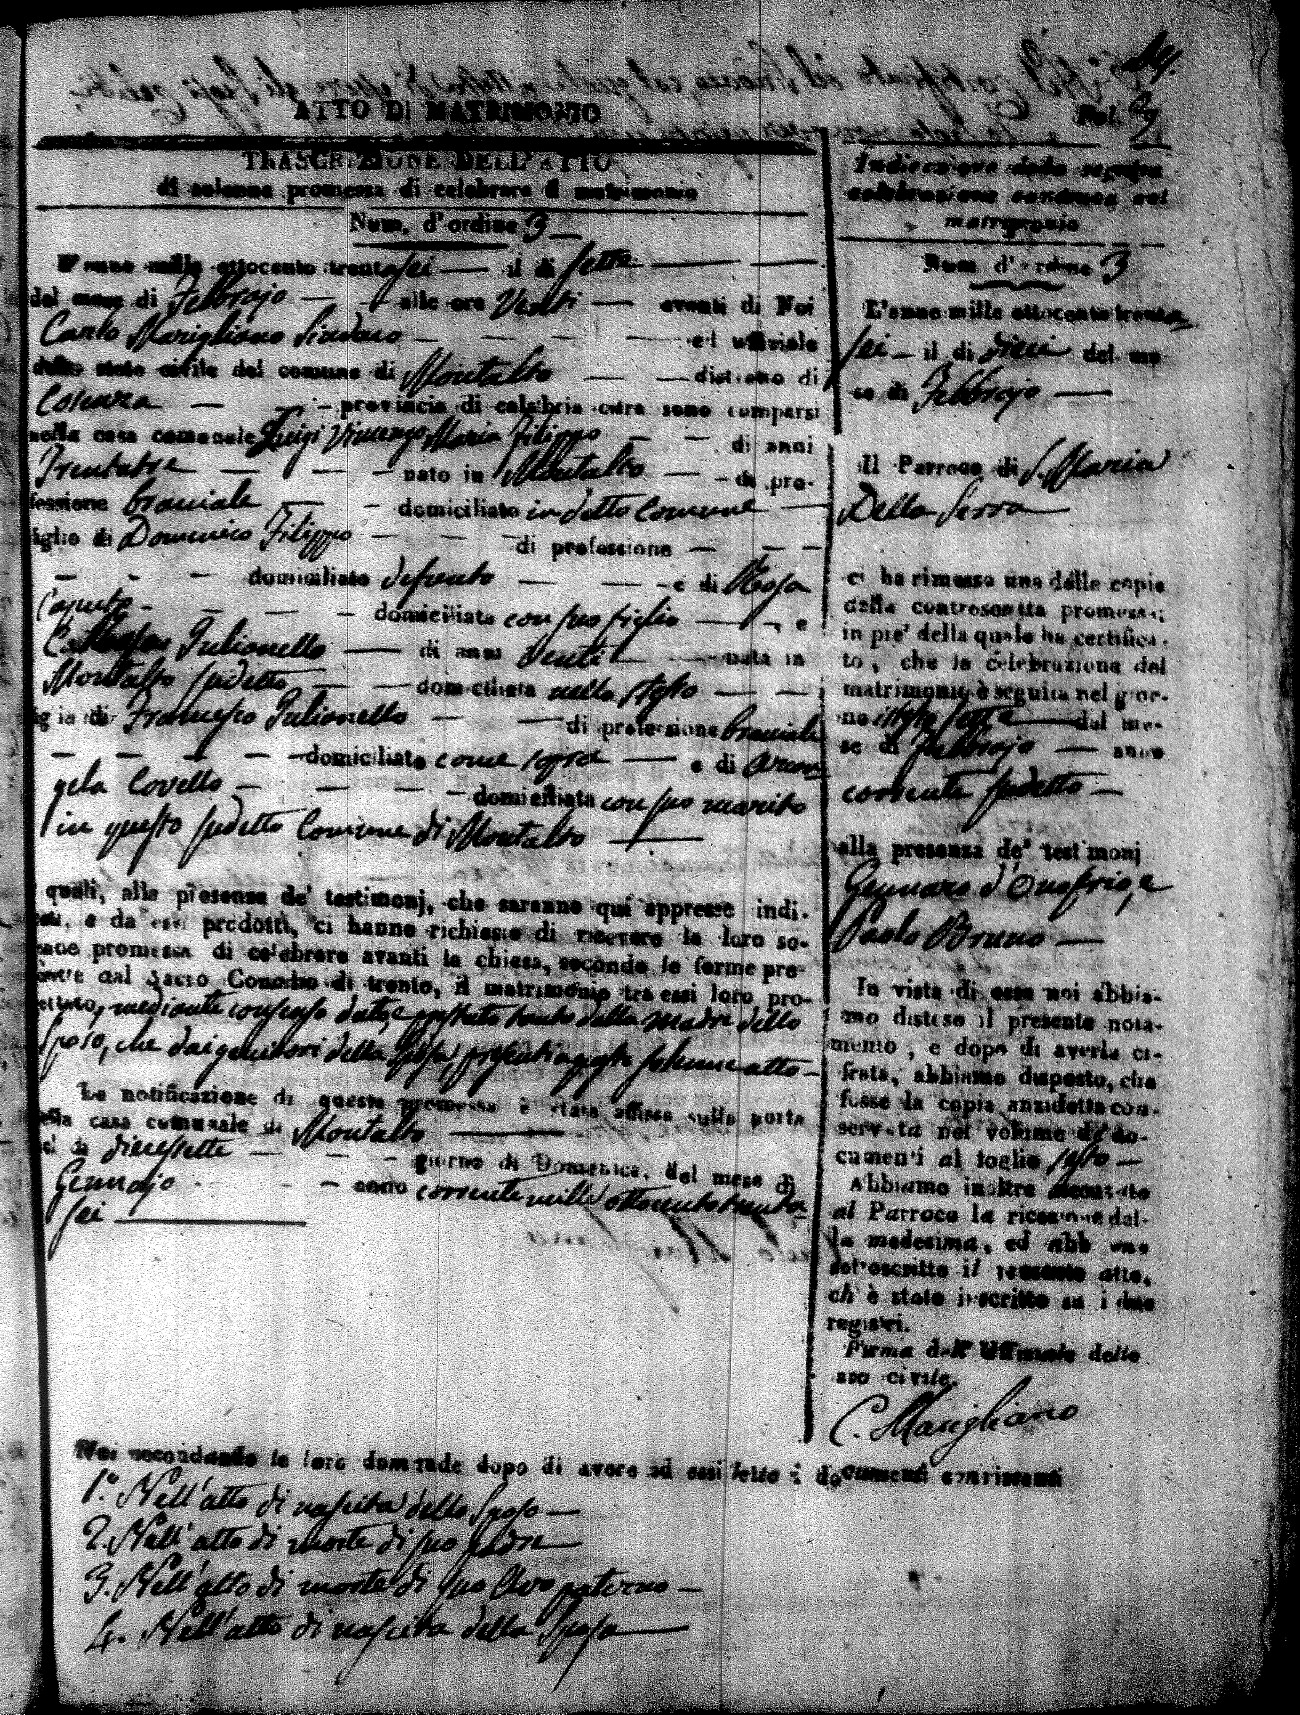 ATTO DI MATRIMONIO
Fol. 3
TRASCRIZIONE DELL'ATTO
di solenne promessa di celebrare il matrimonio
Num. d'ordine 3
L'anno mille ottocento trentasei il di sette
del mese di Febbrajo alle ore Venti avanti di Noi
Carlo Marigliano Sindaco ed uffiziale
dello stato civile del comune di Montalto distretto di
Cosenza provincia di calabria citra sono comparsi
nella casa comunale Luigi Vincenzo Maria Filippo di anni
Trentatre nato in Montalto di pro-
fessione bracciale domiciliato in detto Comune
figlio di Domenico Filippo di professione
domiciliato defunto e di Rosa
Caputo domiciliata con suo figlio , e
Julionello di anni Venti nata in
Montalto sudetto domiciliata nello stesso
figlia di Francesco Julionello di professione bracciale
domiciliato come sopra e di Arcan
gela Covello domiciliata con suo marito
in questo sudetto Comune di Montalto
quali, alla presenza de' testimonj, che saranno qui appresso indi-
cati, e da essi prodotti, ci hanno richiesto di ricevere la loro so-
lenne promessa di celebrare avanti la chiesa, secondo le forme pre-
scritte dal Sacro Concilio di trento, il matrimonio tra essi loro pro-
gettato, mediante consenso dato, e prestato tanto della madre dello
Sposo, che dai genitori della Sposa, presenti a questo solenne atto
La notificazione di questa promessa è stata affissa sulla porta
della casa comunale di Montalto
nel di diecissette giorno di Domenica, del mese di
Gennajo anno corrente mille ottocento trenta
sei
Indicazione della seguita
celebrazione canonica del
matrimonio
Num. d'ordine 3
L'anno mille ottocento trenta
sei il di dieci del me-
se di Febbrajo
Il Parroco di S. Maria
Della Serra
ci ha rimessa una delle copie
della controscritta promessa;
in piè della quale ha certifica-
to, che la celebrazione del
matrimonio è seguita nel gior-
no sette del me-
se di Febbrajo anno
corrente sudetto
alla presenza de' testimonj
Gennaro d'Onofrio, e
Paolo Bruno
In vista di essa noi abbia-
mo disteso il presente nota-
mento, e dopo di averla ci-
frata, abbiamo disposto, che
fosse la copia anzidetta con-
servata nel volume de' do-
cumenti al foglio
Abbiamo inoltre accusato
al Parroco la ricezione del-
la medesima, ed abbiamo
sottoscritto il presente atto,
ch' è stato inscritto su i due
registri.
Firma dell' Uffiziale dello
stato civile.
C. Marigliano
Noi secondando le loro domande dopo di avere ad essi letto i documenti consistenti
1.° Nell'atto di nascita dello Sposo
2. Nell'atto di morte di suo padre
3. Nell'atto di morte di suo Avo paterno
4. Nell'atto di nascita della Sposa